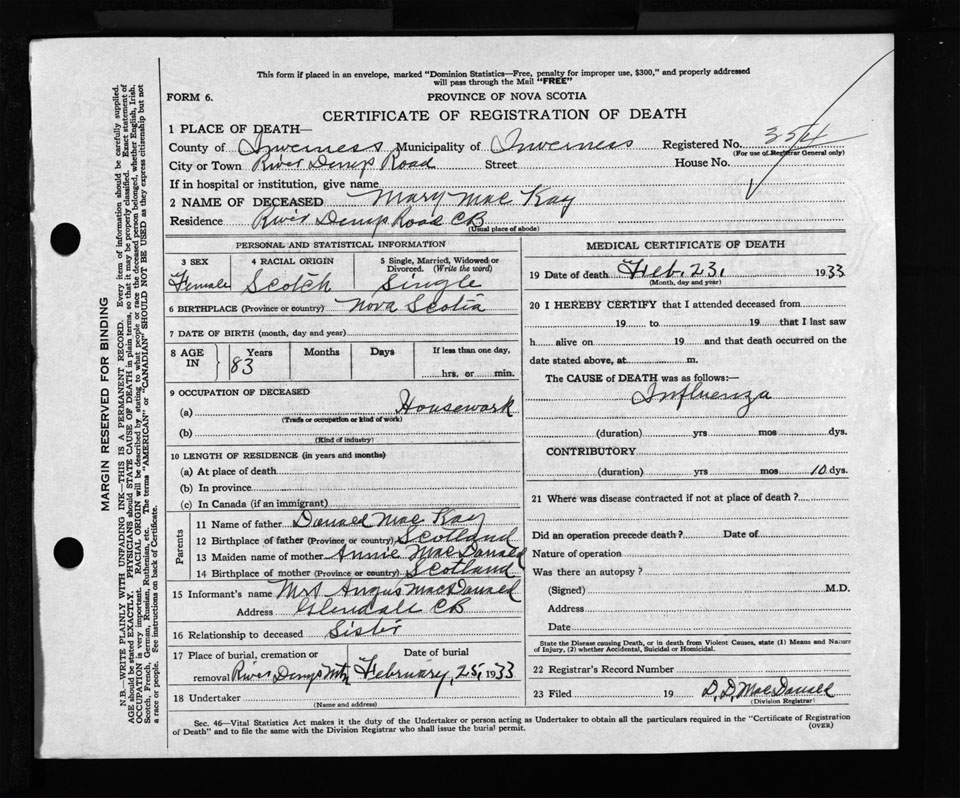 This form if placed in an envelope, marked "Dominion Statistics—Free, penalty for improper use, $300," and properly addressed
will pass through the Mail "FREE"
FORM 6. PROVINCE OF NOVA SCOTIA
CERTIFICATE OF REGISTRATION OF DEATH
1 PLACE OF DEATH—
County of Inverness Municipality of Inverness Registered No. 354
(For use of Registrar General only)
City or Town River Denys Road Street House No.
If in hospital or institution, give name
2 NAME OF DECEASED Mary Mac Kay
Residence River Denys Road CB
(Usual place of abode)
PERSONAL AND STATISTICAL INFORMATION
3 SEX 4 RACIAL ORIGIN 5 Single, Married, Widowed or
Divorced. (Write the word)
Female Scotch Single
6 BIRTHPLACE (Province or country) Nova Scotia
7 DATE OF BIRTH (month, day and year)
8 AGE IN Years Months Days If less than one day,
83 hrs. or min.
9 OCCUPATION OF DECEASED
(a) Housework
(Trade or occupation or kind of work)
(b)
(Kind of industry)
10 LENGTH OF RESIDENCE (in years and months)
(a) At place of death
(b) In province
(c) In Canada (if an immigrant)
Parents
11 Name of father Donald Mac Kay
12 Birthplace of father (Province or country) Scotland
13 Maiden name of mother Annie MacDonald
14 Birthplace of mother (Province or country) Scotland
15 Informant's name Mrs Angus MacDonald
Address Glendale CB
16 Relationship to deceased Sister
17 Place of burial, cremation or Date of burial
removal River Denys Mtn February, 25, 1933
18 Undertaker
(Name and address)
MEDICAL CERTIFICATE OF DEATH
19 Date of death Feb. 23, 1933
(Month, day and year)
20 I HEREBY CERTIFY that I attended deceased from
19 to 19 that I last saw
h alive on 19 and that death occurred on the
date stated above, at m.
The CAUSE of DEATH was as follows:—
Influenza
(duration) yrs mos dys.
CONTRIBUTORY
(duration) yrs mos 10 dys.
21 Where was disease contracted if not at place of death?
Did an operation precede death? Date of
Nature of operation
Was there an autopsy?
(Signed) M.D.
Address
Date
State the Disease causing Death, or in death from Violent Causes, state (1) Means and Nature
of Injury, (2) whether Accidental, Suicidal or Homicidal.
22 Registrar's Record Number
23 Filed 19 D. D. MacDonald
(Division Registrar)
Sec. 46—Vital Statistics Act makes it the duty of the Undertaker or person acting as Undertaker to obtain all the particulars required in the "Certificate of Registration
of Death" and to file the same with the Division Registrar who shall issue the burial permit. (OVER)
MARGIN RESERVED FOR BINDING
N.B.—WRITE PLAINLY WITH UNFADING INK—THIS IS A PERMANENT RECORD. Every item of information should be carefully supplied.
AGE should be stated EXACTLY. PHYSICIANS should STATE CAUSE OF DEATH in plain terms, so that it may be properly classified. Exact statement of
OCCUPATION is very important. RACIAL ORIGIN will be described by stating to what people or race the deceased person belonged, whether English, Irish,
Scotch, French, German, Russian, Ruthenian, etc. The terms "AMERICAN" or "CANADIAN" SHOULD NOT BE USED as they express citizenship but not
a race or people. See instructions on back of Certificate.